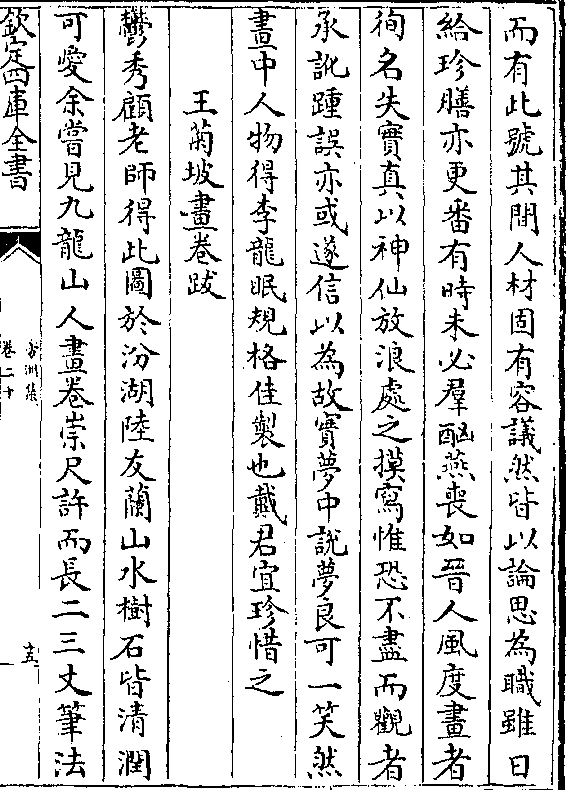 而有此號其間人材固有容議然皆以論思為職雖日
給珍膳亦更番有時未必羣酗燕喪如晉人風度畫者
徇名失實真以神仙放浪處之摸寫惟恐不盡而觀者
承訛踵誤亦或遂信以為故實夢中説夢良可一笑然
畫中人物得李龍眠規格佳製也戴君宜珍惜之
王菊坡畫卷跋
鬱秀顧老師得此圖於汾湖陸友蘭山水樹石皆清潤
可愛余嘗見九龍山人畫卷崇尺許而長二三丈筆法
欽定四庫全書
方洲集
卷二十
十五